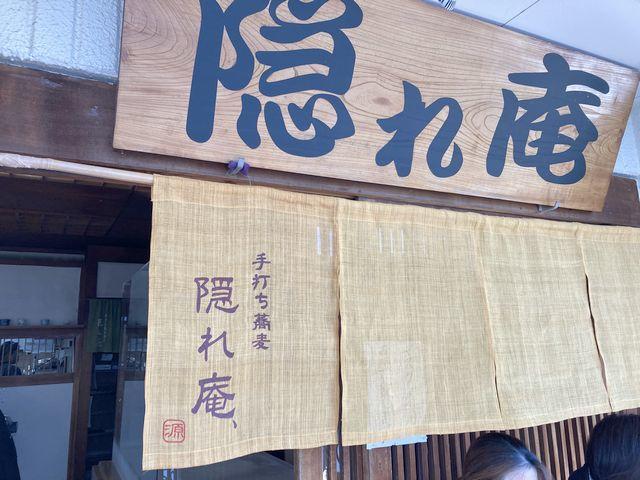 隠れ庵
手打ち蕎麦
隠れ庵、
源